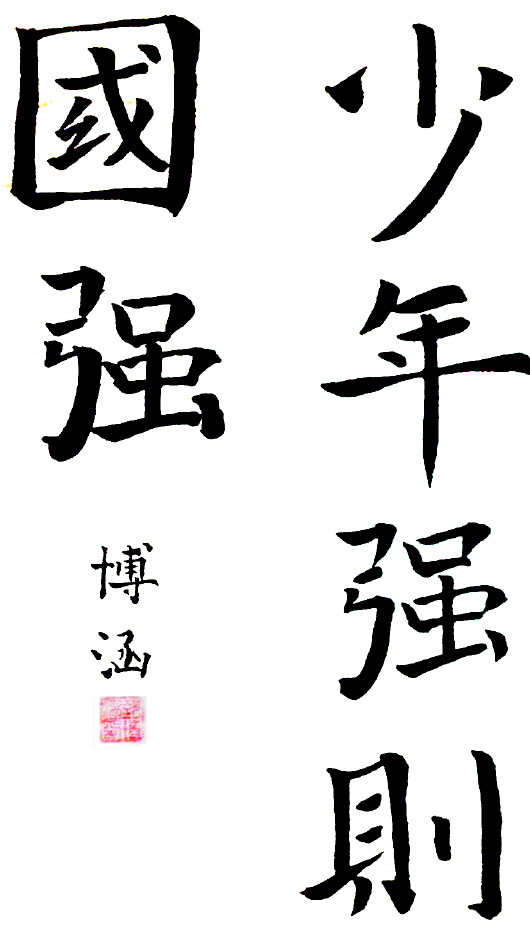 少年强則
國强
博涵